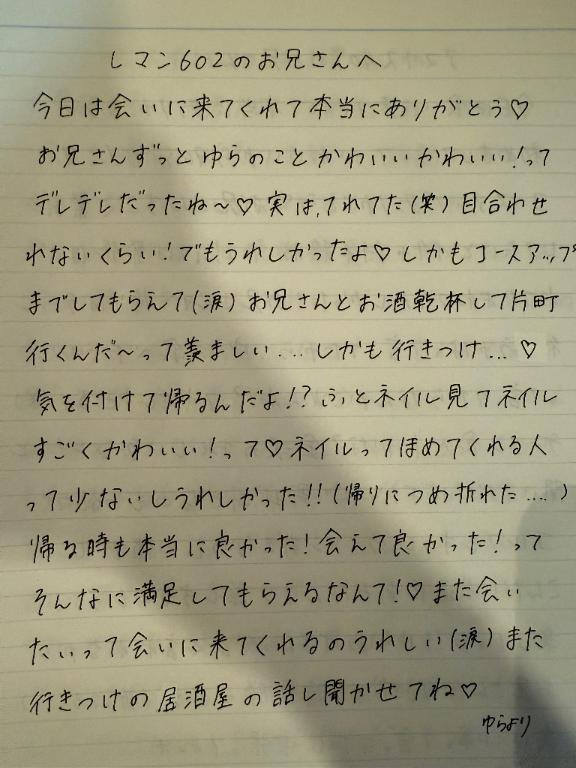 レマン602のお兄さんへ
今日は会いに来てくれて本当にありがとう♡
お兄さんずっとゆらのことかわいいかわいい!って
デレデレだったね〜♡実は、てれてた(笑)目合わせ
れないくらい!でもうれしかったよ♡しかもコースアップ
までしてもらえて(涙)お兄さんとお酒乾杯して片町
行くんだ〜って羨ましい...しかも行きつけ...♡
気を付けて帰るんだよ!?ふとネイル見てネイル
すごくかわいい!って♡ネイルってほめてくれる人
って少ないしうれしかった!!(帰りにつめ折れた....)
帰る時も本当に良かった!会えて良かった!って
そんなに満足してもらえるなんて!♡また会い
たいって会いに来てくれるのうれしい(涙)また
行きつけの居酒屋の話し聞かせてね♡
ゆらより